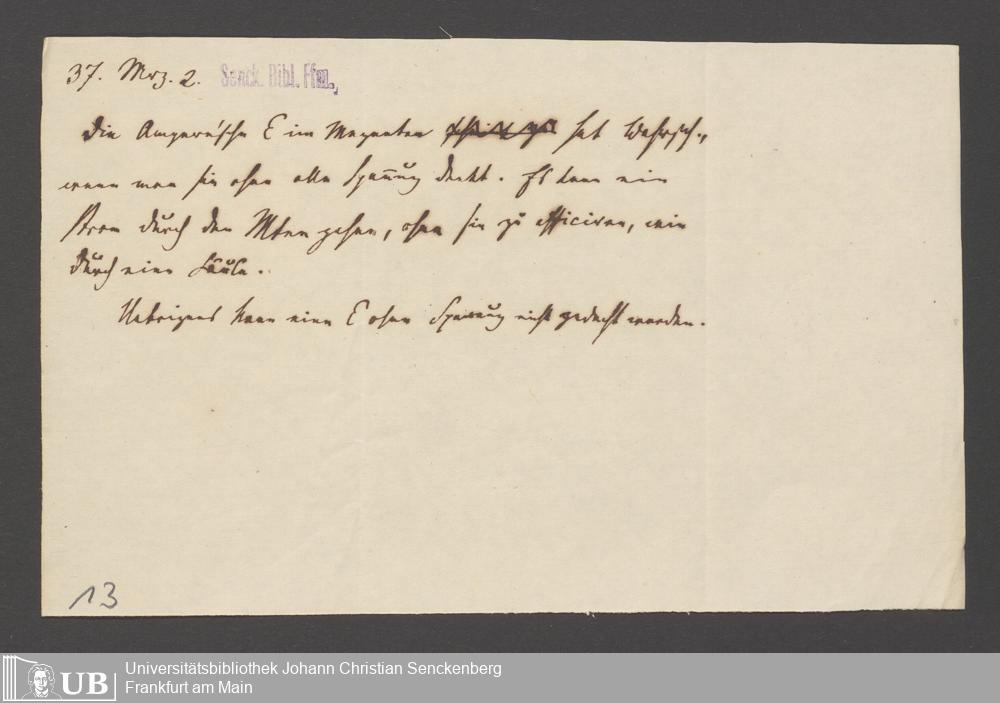 37. Mrz. 2. Senck. Bibl. Ffm.
Die Ampere'sche E im Magneten hat Wahrsch.,
wenn man sie ohne alle Spannung denkt. Es kann ein
Strom durch den Mten gehen, ohne sie zu afficiren, wie
durch eine Säule.
Uebrigens kann eine E ohne Spannung nicht gedacht werden.
13
UB
Universitätsbibliothek Johann Christian Senckenberg
Frankfurt am Main